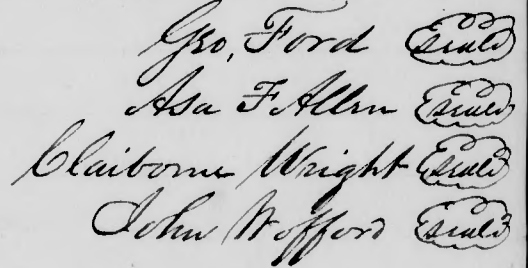 Geo, Ford Seald
Asa F Allen Seald
Claiborne Wright Seald
John Wofford Seald